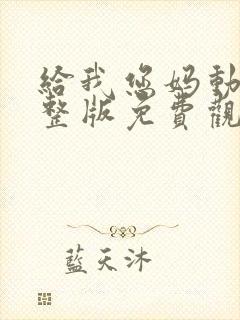 給我您妈動
整版免費觀
藍天沐